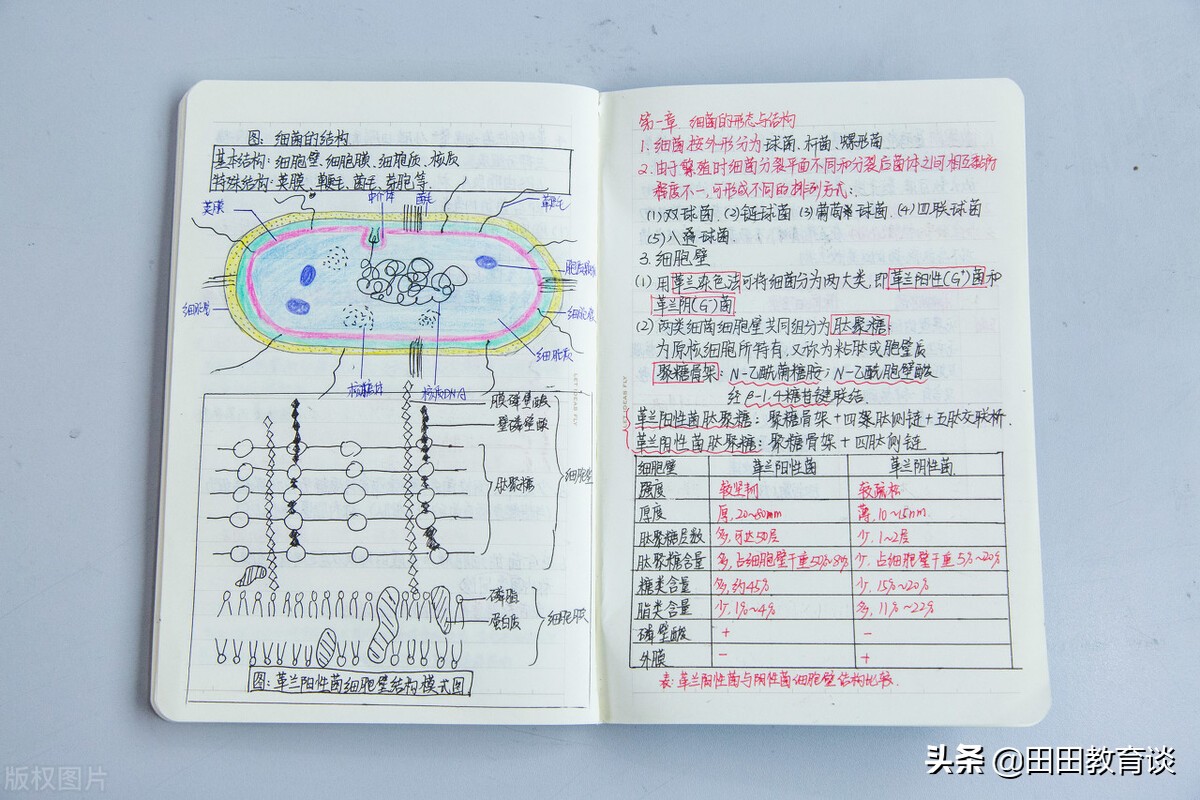 图：细菌的结构
基本结构：细胞壁、细胞膜、细胞质、核质
特殊结构：荚膜、鞭毛、菌毛、芽孢等.
荚膜
中介体
菌毛
鞭毛
细胞壁
细胞膜
细胞质
核糖体
核质DNA
膜磷壁酸
壁磷壁酸
肽聚糖
细胞壁
磷脂
蛋白质
细胞膜
图：革兰阳性菌细胞壁结构模式图
第一章 细菌的形态与结构
1.细菌按外形分为球菌、杆菌、螺形菌
2.由于繁殖时细菌分裂平面不同和分裂后菌体之间相互黏附
程度不一,可形成不同的排列方式:
(1)双球菌.(2)链球菌 (3)葡萄球菌.(4)四联球菌
(5)八叠球菌.
3.细胞壁
(1)用革兰染色法可将细菌分为两大类,即革兰阳性(G⁺)菌和
革兰阴(G⁻)菌
(2)两类细菌细胞壁共同组分为肽聚糖:
为原核细胞所特有,又称为粘肽或胞壁质
聚糖骨架：N-乙酰葡糖胺；N-乙酰胞壁酸
经β-1.4糖苷键联结.
革兰阳性菌肽聚糖：聚糖骨架+四聚肽侧链+五肽交联桥.
革兰阴性菌肽聚糖：聚糖骨架+四肽侧链
细胞壁 革兰阳性菌 革兰阴性菌
强度 较坚韧 较疏松
厚度 厚,20~80nm 薄,10~15nm.
肽聚糖层数 多,可达50层 少,1~2层
肽聚糖含量 多,占细胞壁干重50%~80% 少,占细胞壁干重5%~20%
糖类含量 多,约45% 少,15%~20%
脂类含量 少,1%~4% 多,11%~22%
磷壁酸 + −
外膜 − +
表：革兰阳性菌与阴性菌细胞壁结构比较.
版权图片
头条 @田田教育谈